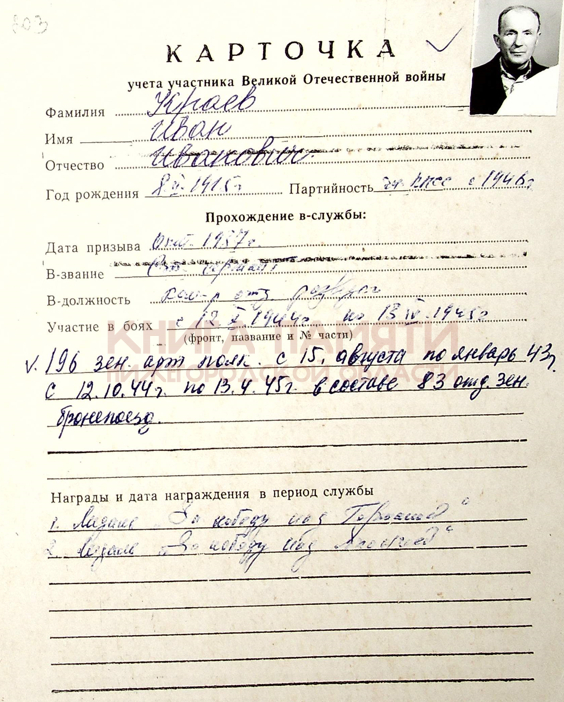 803
КАРТОЧКА
учета участника Великой Отечественной войны
Фамилия Краев
Имя Иван
Отчество Иванович
Год рождения 1915г Партийность чл КПСС с 1946г
Прохождение в-службы:
Дата призыва Окт 1937г
В-звание сержант
В-должность ком-р отд
Участие в боях с 12 X 1944г по 13 IV 1945г
(фронт, название и № части)
КНИГА ПАМЯТИ
НИЖЕГОРОДСКОЙ ОБЛАСТИ
V. 196 зен. арт полк. с 15, августа по январь 43г.
С 12.10.44г. по 13.4.45г. в составе 83 отд. зен.
бронепоезд.
Награды и дата награждения в период службы
1. Медаль „За победу над Германией"
2. Медаль „За победу над Японией"